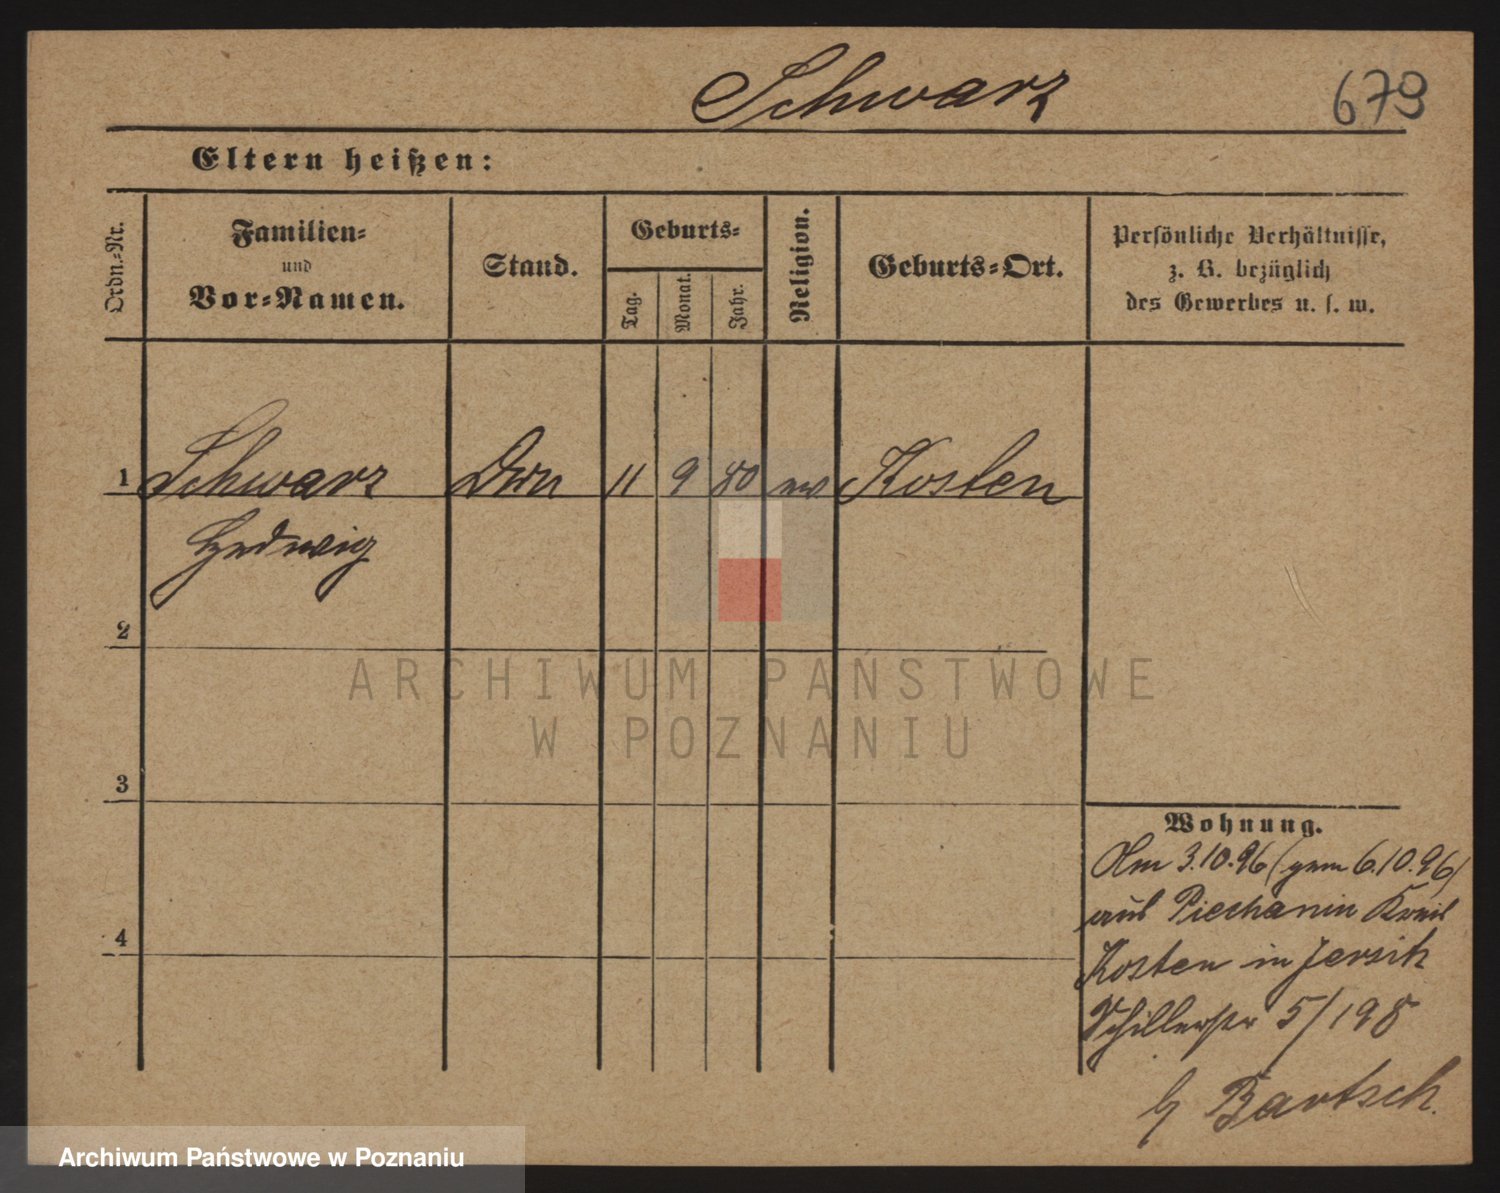 Schwarz 679
Eltern heißen:
Ordn.-Nr.
Familien-
und
Vor-Namen.
Stand.
Geburts-
Tag.
Monat.
Jahr.
Religion.
Geburts-Ort.
Persönliche Verhältnisse,
z. B. bezüglich
des Gewerbes u. s. w.
1 Schwarz 11 9 80 ev Kosten
Hedwig
2
3
4
Wohnung.
Am 3.10.96 (gem 6.10.96)
aus Piechanin Kreis
Kosten in Jersitz
Schillerstr 5/198
b Bartsch.
ARCHIWUM PAŃSTWOWE
W POZNANIU
Archiwum Państwowe w Poznaniu